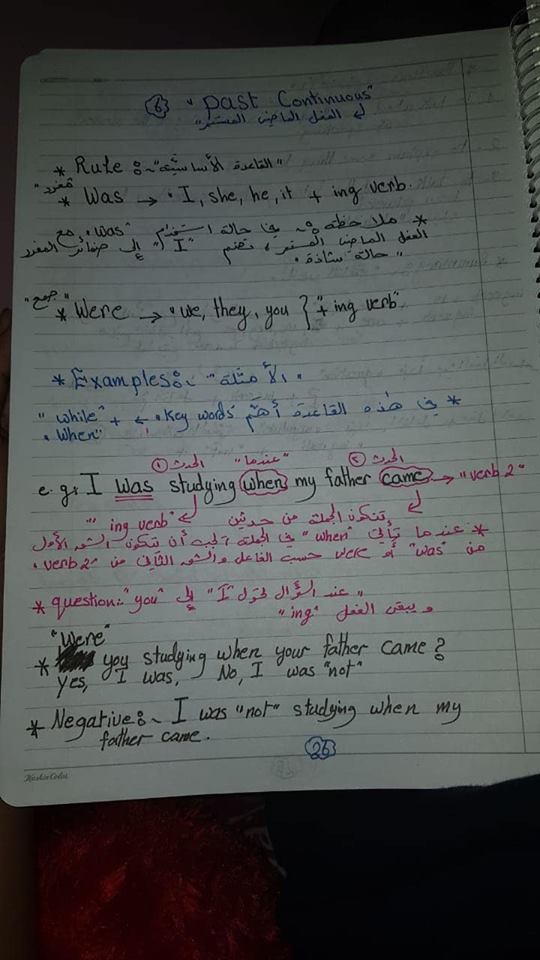 ⑥ "Past Continuous"
"الفعل الماضي المستمر"
* Rule :~ "القاعدة الأساسية"
"مفرد"
* Was → • I, she, he, it + ing verb.
* ملاحظة :~ في حالة استخدام "was" مع
الفعل الماضي المستمر، تضم "I" إلى ضمائر المفرد
"حالة شاذة".
"جمع"
* Were → "we, they, you } "+ ing verb"
* Examples :~ "الأمثلة".
* في هذه القاعدة أهم key words. ← + "while"
. when
الحدث ① "عندما" الحدث ②
e.g: I was studying when my father came → "verb 2"
"ing verb" تتكون الجملة من حدثين
* عندما تأتي "when" في الجملة يجب أن تتكون الشق الأول
من "was" أو were حسب الفاعل والشق الثاني من "verb 2.
* question:~ "you" إلى "I" عند السؤال تحول
ويبقى الفعل "ing"
"Were"
* you studying when your father came?
yes, I was, No, I was "not"
* Negative :~ I was "not" studying when my
father came.
26